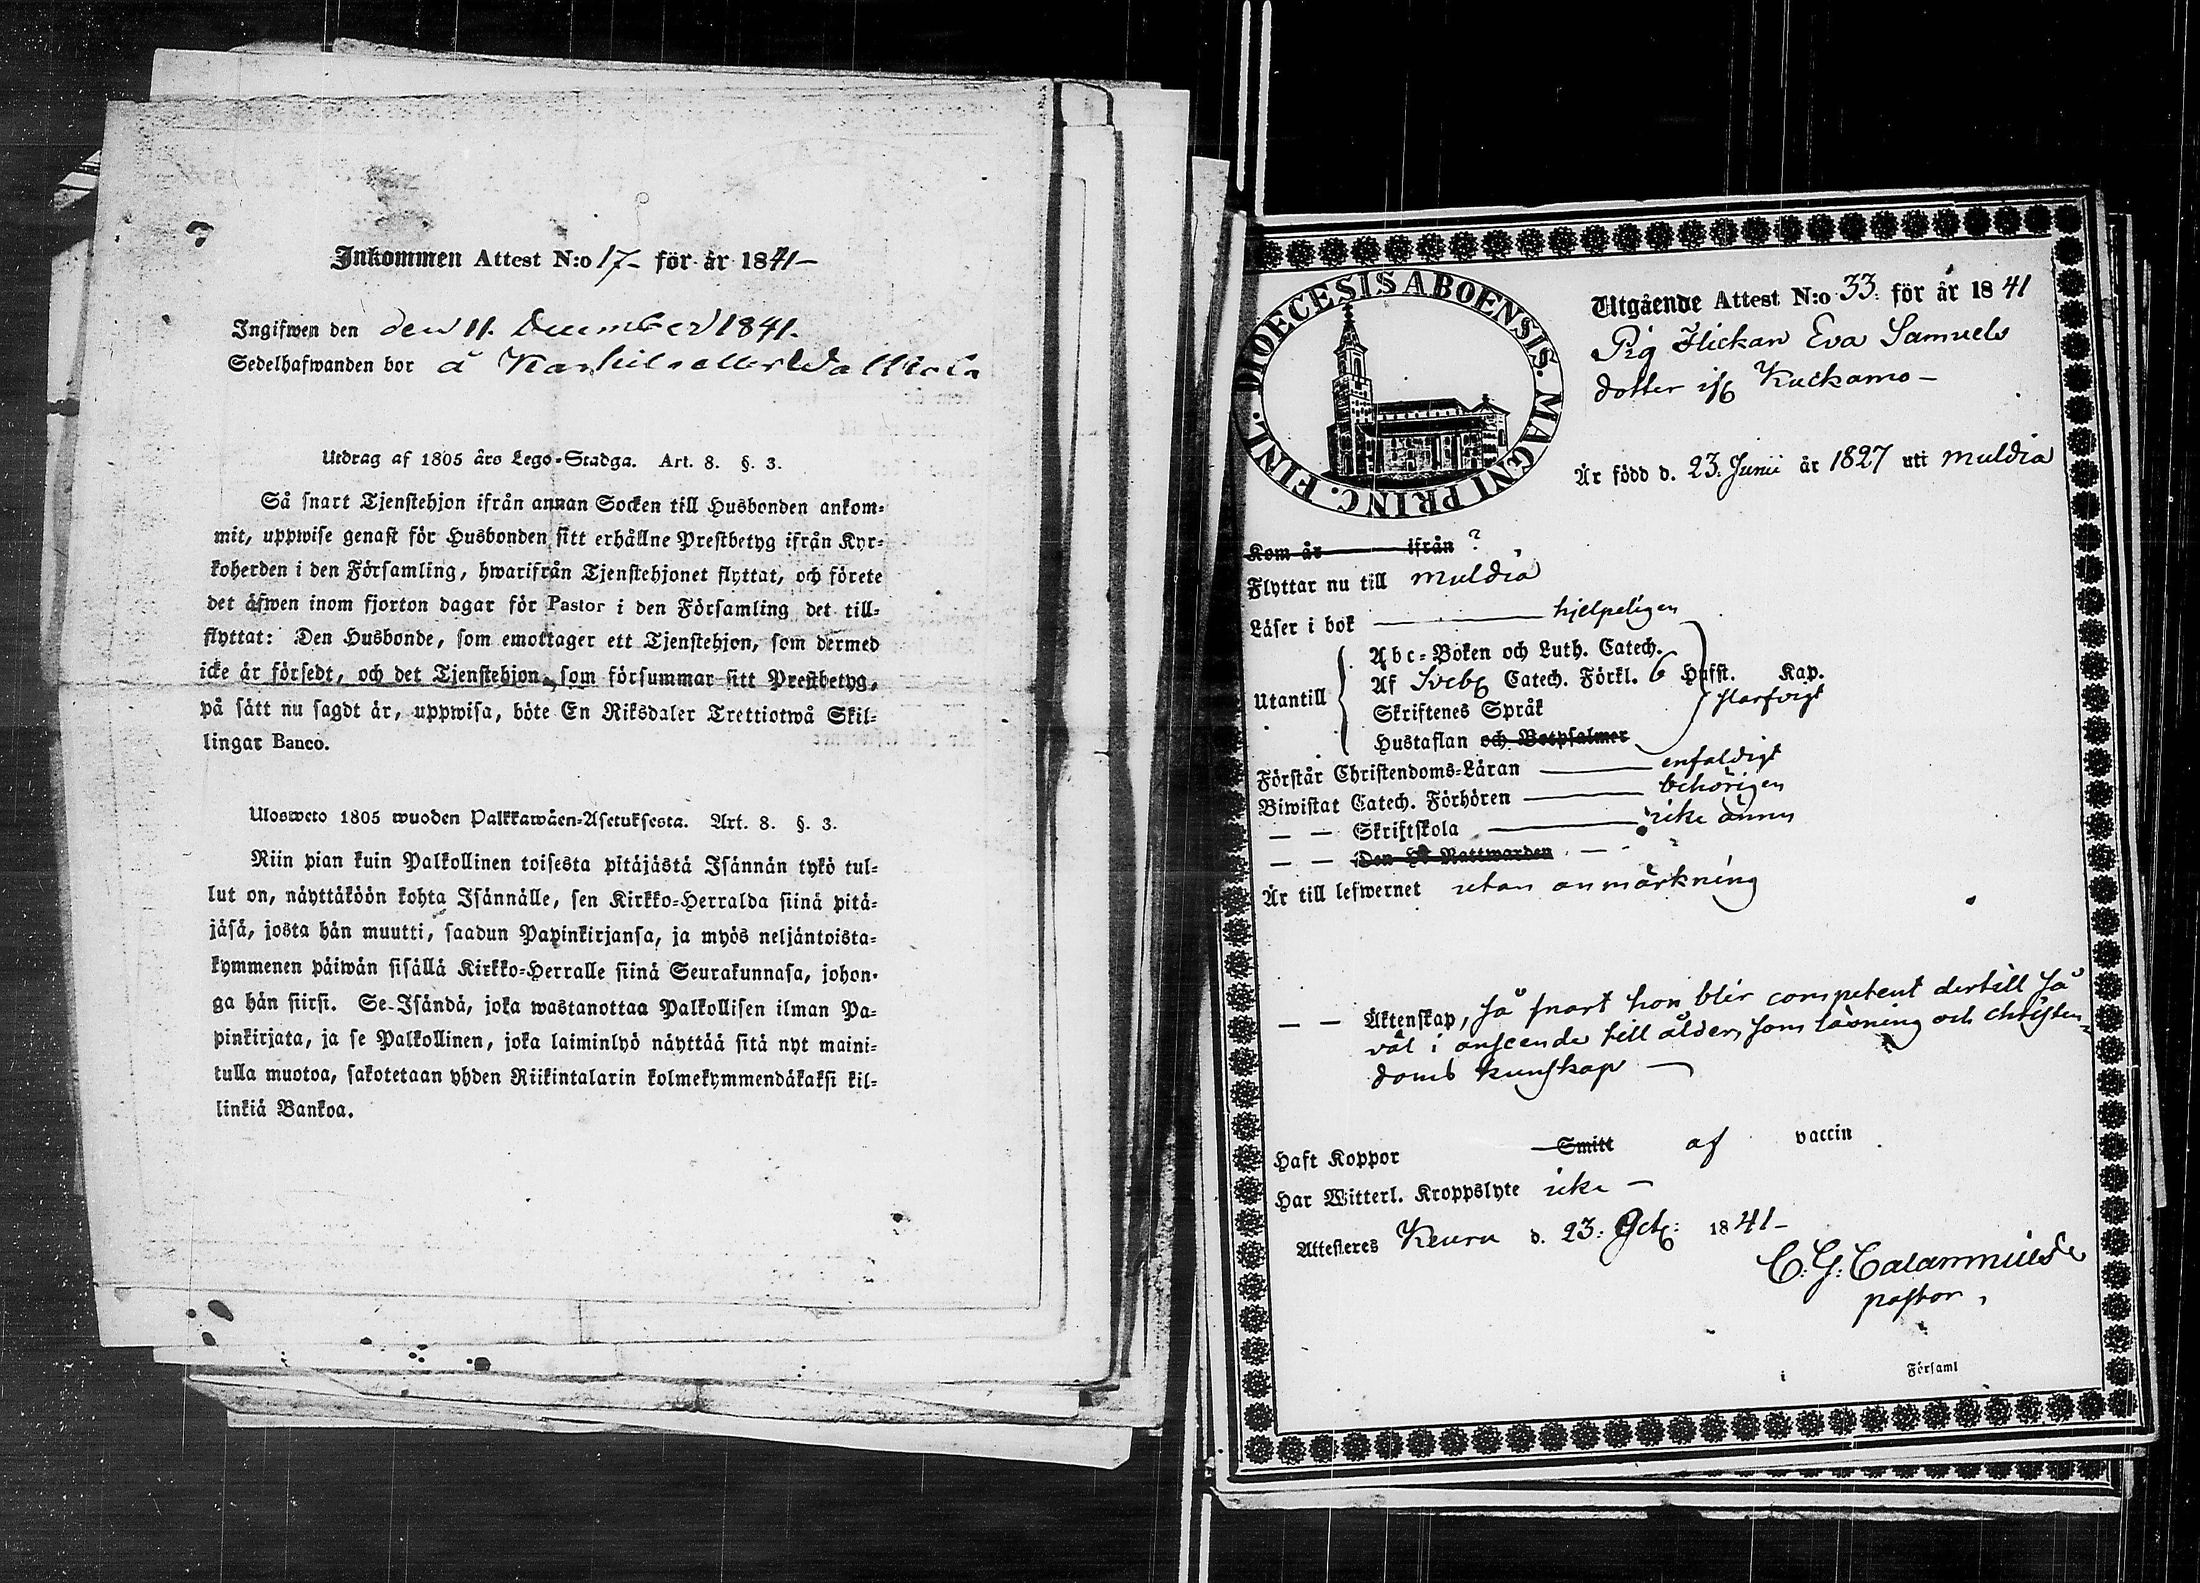 Inkommen Attest N:o 17- för år 1841-
Ingifwen den den 11. December 1841.
Sedelhafwanden bor å
Utdrag af 1805 års Lego-Stadga. Art. 8. §. 3.
Så snart Tjenstehjon ifrån annan Socken till Husbonden ankom-
mit, uppwise genast för Husbonden sitt erhållne Prestbetyg ifrån Kyr-
koherden i den Församling, hwarifrån Tjenstehjonet flyttat, och förete
det äfwen inom fjorton dagar för Pastor i den Församling det till-
flyttat: Den Husbonde, som emottager ett Tjenstehjon, som dermed
icke är försedt, och det Tjenstehjon, som försummar sitt Prestbetyg,
på sätt nu sagdt är, uppwisa, böte En Riksdaler Trettiotwå Skil-
lingar Banco.
Ulosweto 1805 wuoden Palkkawäen-Asetuksesta. Art. 8. §. 3.
Niin pian kuin Palkollinen toisesta pitäjästä Isännän tykö tul-
lut on, näyttäköön kohta Isännälle, sen Kirkko-Herralda siinä pitä-
jäsä, josta hän muutti, saadun Papinkirjansa, ja myös neljäntoista-
kymmenen päiwän sisällä Kirkko-Herralle siinä Seurakunnasa, johon-
ga hän siirsi. Se Isändä, joka wastanottaa Palkollisen ilman Pa-
pinkirjata, ja se Palkollinen, joka laiminlyö näyttää sitä nyt maini-
tulla muotoa, sakotetaan yhden Riikintalarin kolmekymmendäkaksi kil-
linkiä Bankoa.
DIOECESIS ABOENSIS. MAGNI PRINC. FINL.
Utgående Attest N:o 33: för år 1841
Pig Flickan Eva Samuels
dotter ifr Kuckamo-
Är född d. 23. Junii år 1827 uti Muldia
Kom år ifrån ?
Flyttar nu till Muldia
Läser i bok hjelpeligen
Utantill
Abc-Boken och Luth. Catech.
Af Sveb Catech. Förkl. 6 Hufst. Kap.
Skriftenes Språk
Hustaflan och Botpsalmer
Förstår Christendoms-Läran enfaldigt
Biwistat Catech. Förhören behörigen
— — Skriftskola icke ännu
— — Den H. Nattwarden
Är till lefwernet utan anmärkning
— — Äktenskap, så snart hon blir competent dertill så
väl i anseende till ålder, som läsning och christen-
doms kunskap —
Haft Koppor Smitt af vaccin
Har Witterl. Kroppslyte icke —
Attesteres Keuru d. 23: Oct: 1841-
C: G: Calamnius
pastor
i Församl